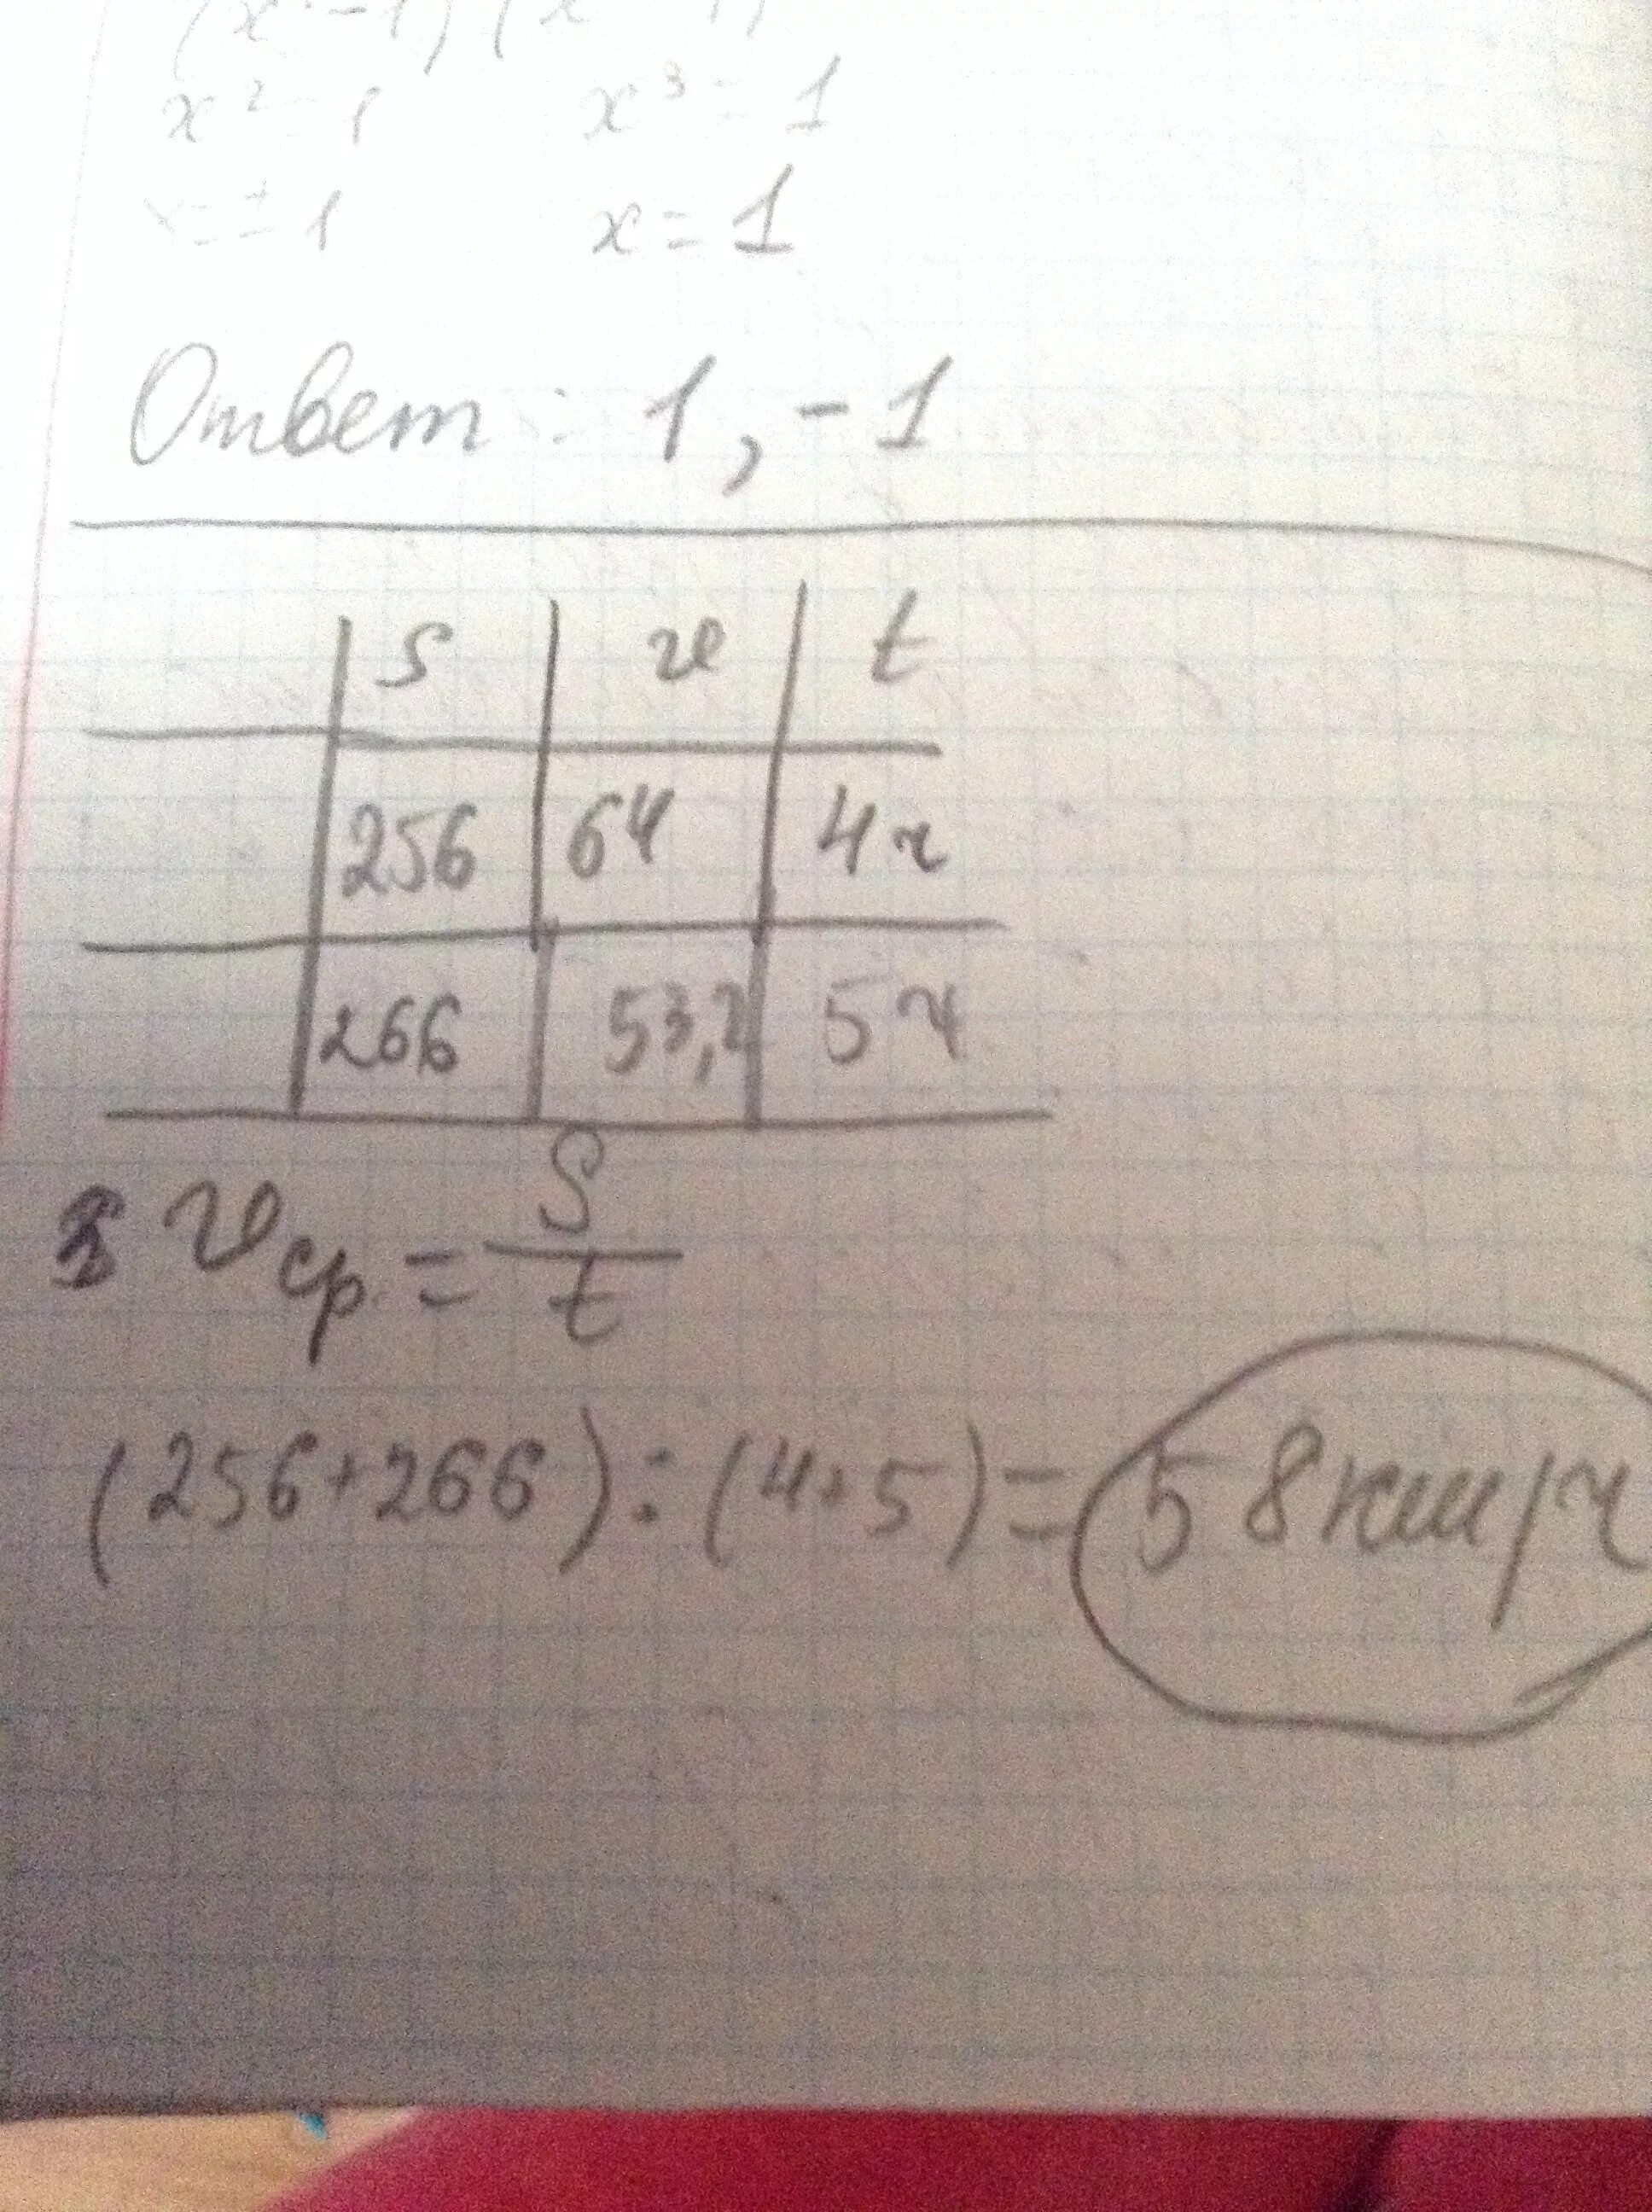 x² = 1 x³ = 1
x = ±1 x = 1
Ответ: 1, -1
S v t
256 64 4ч
266 53,2 5ч
vср. = S/t
(256+266):(4+5)= 58км/ч